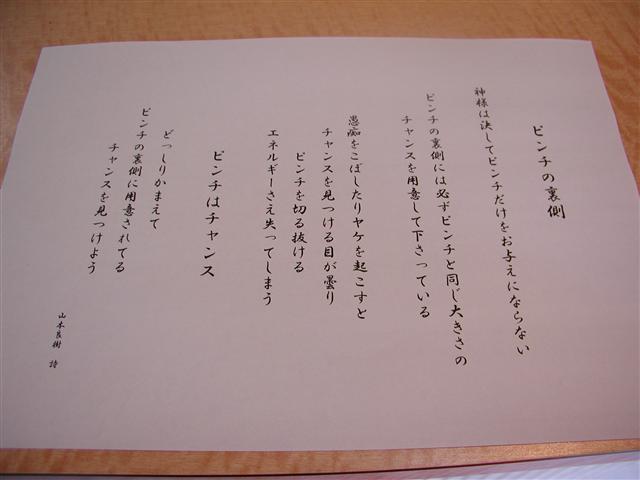 ピンチの裏側
神様は決してピンチだけをお与えにならない
ピンチの裏側には必ずピンチと同じ大きさの
チャンスを用意して下さっている
愚痴をこぼしたりヤケを起こすと
チャンスを見つける目が曇り
ピンチを切る抜ける
エネルギーさえ失ってしまう
ピンチはチャンス
どっしりかまえて
ピンチの裏側に用意されてる
チャンスを見つけよう
山本良樹 詩